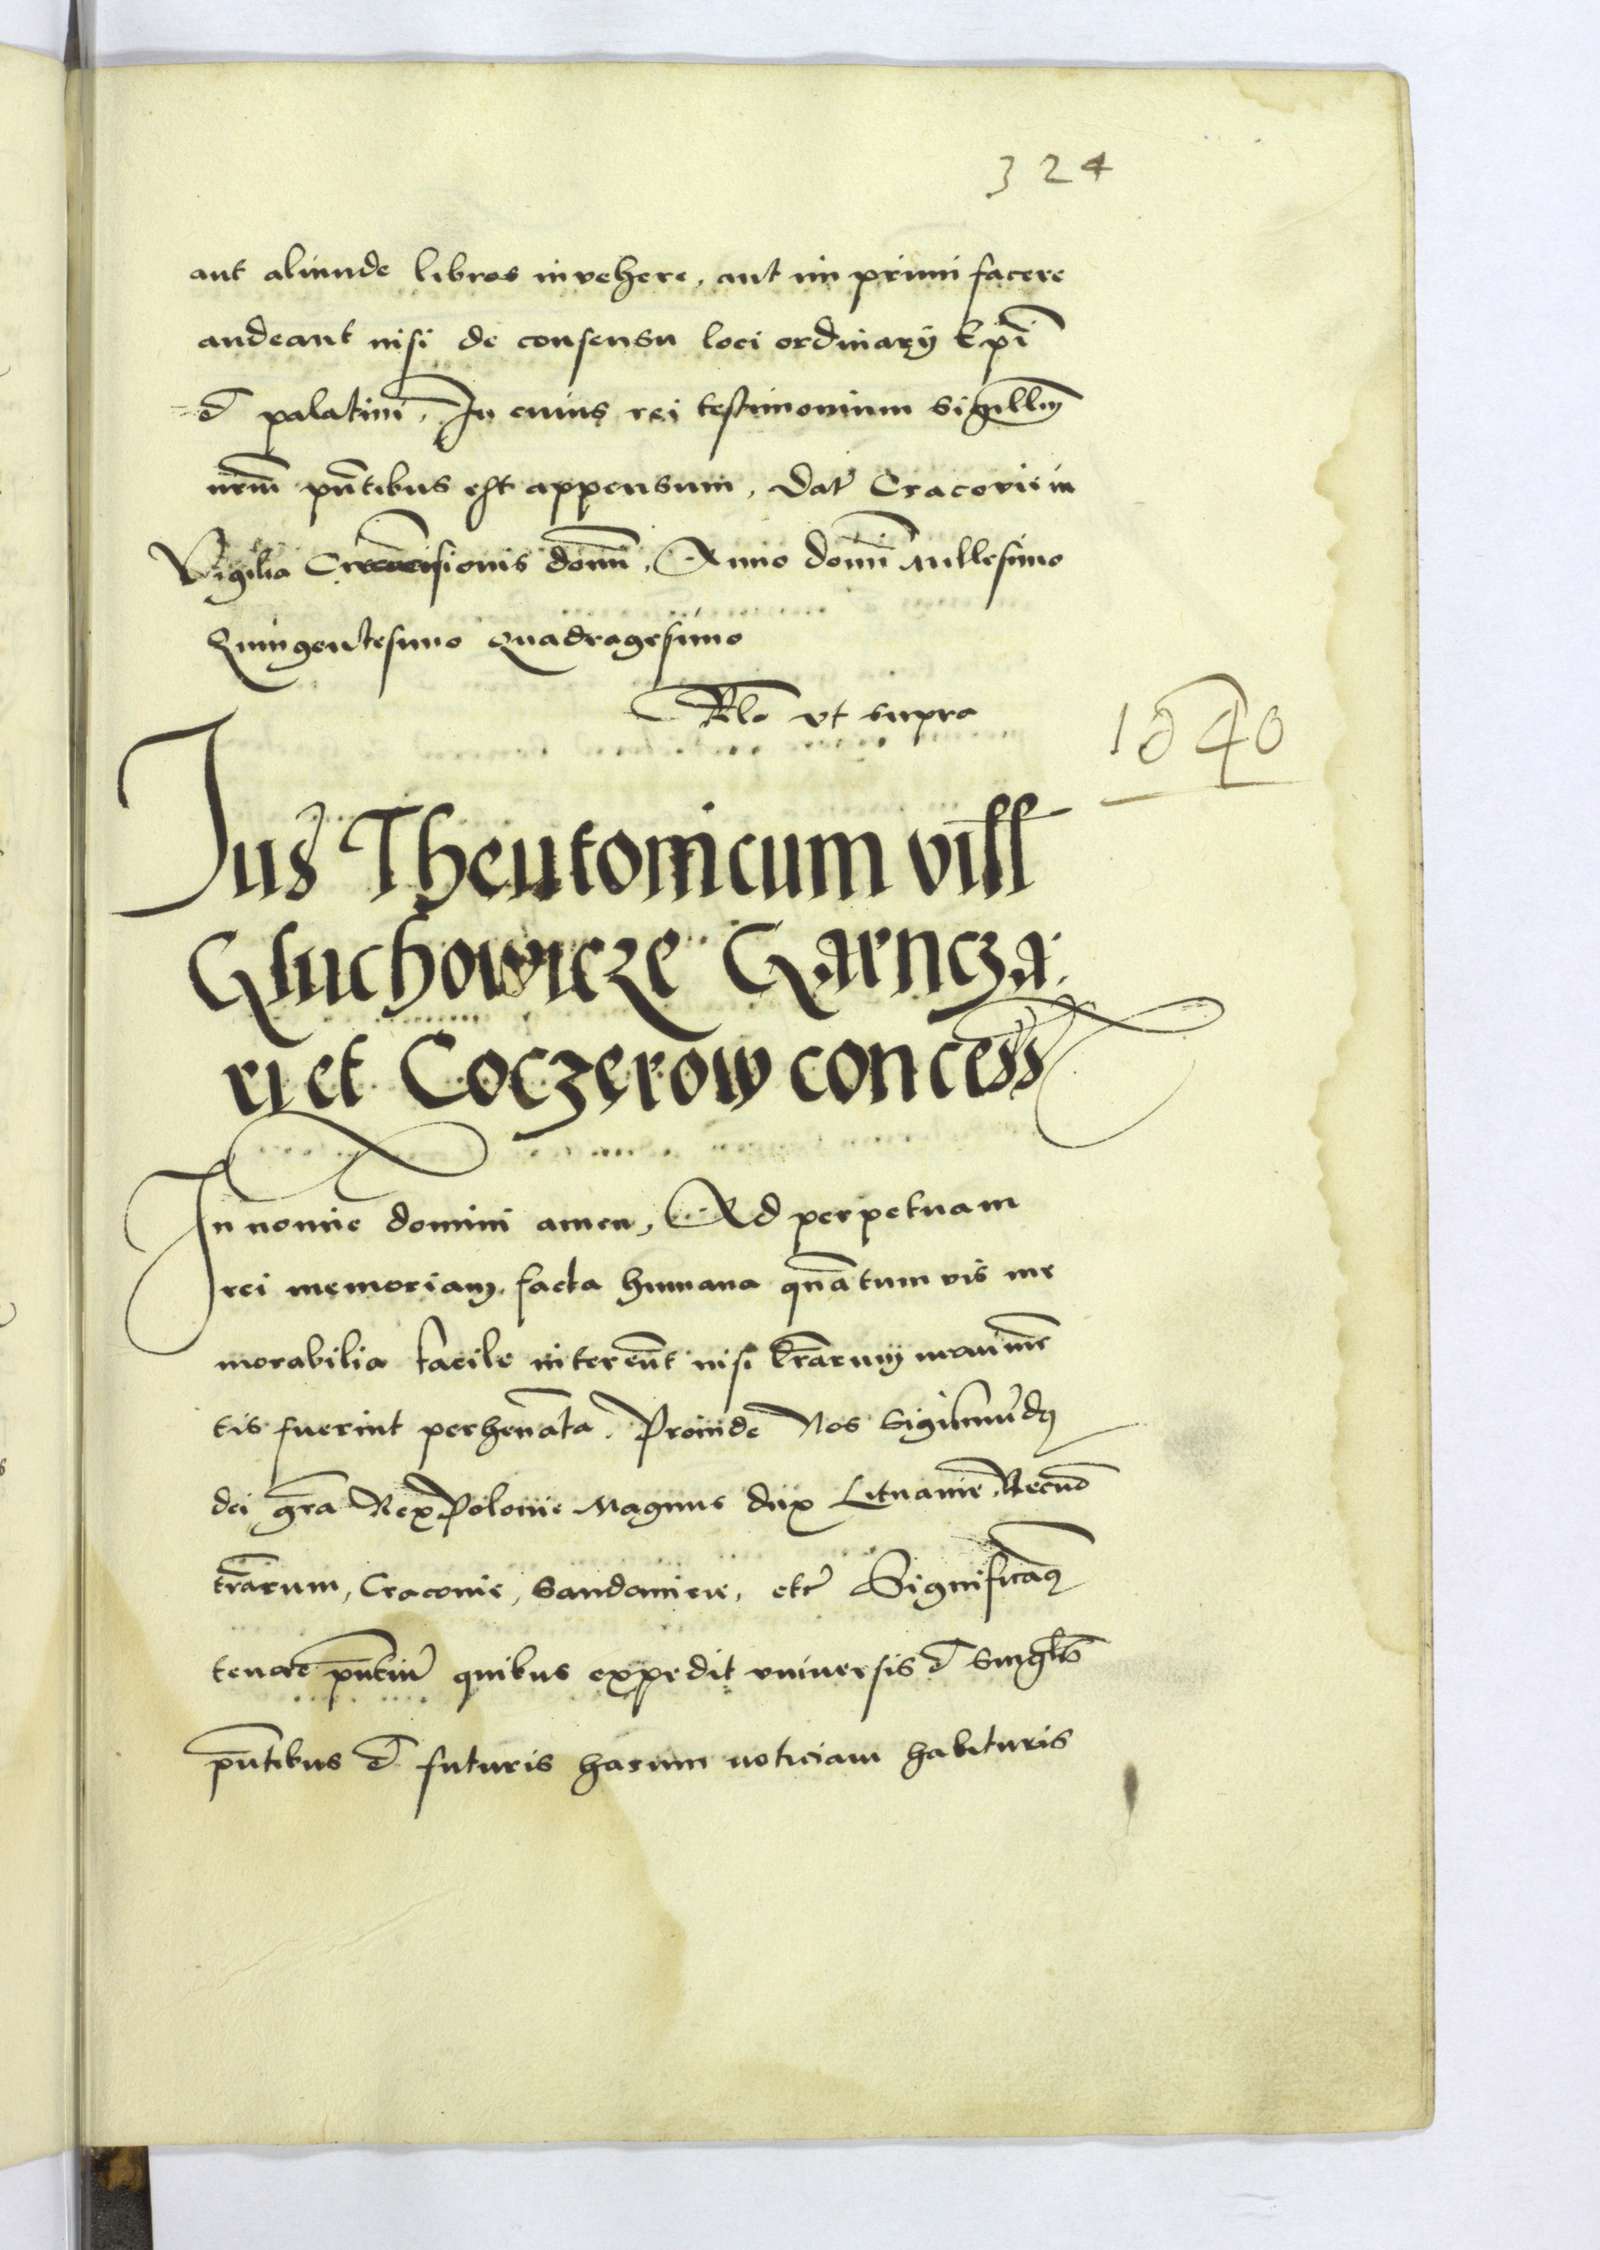 324
aut aliunde libros invehere, aut imprimi facere
audeant nisi de consensu loci ordinarij Epi
et palatini, In cuius rei testimonium sigillm
nrm pntibus est appensum, Dat Cracovie in
Vigilia Circumcisionis domi, Anno domi Millesimo
Quingentesimo quadragesimo
Rlo vt supra
1540
Jus Theutonicum vill
Gluchowicze Garncza
ri et Coczerow concess
In nomie domini amen, Ad perpetuam
rei memoriam, facta humana quatum vis me
morabilia facile intereut nisi lrarum monime
tis fuerint perhenata. Proinde Nos Sigismudq
dei gra Rex Polonie Magnus dux Lituanie, Necno
trarum, Cracovie, Sandomirie, etc Significaq
tenore pntiu quibus expedit vniversis et singlis
pntibus et futuris harum noticiam habituris